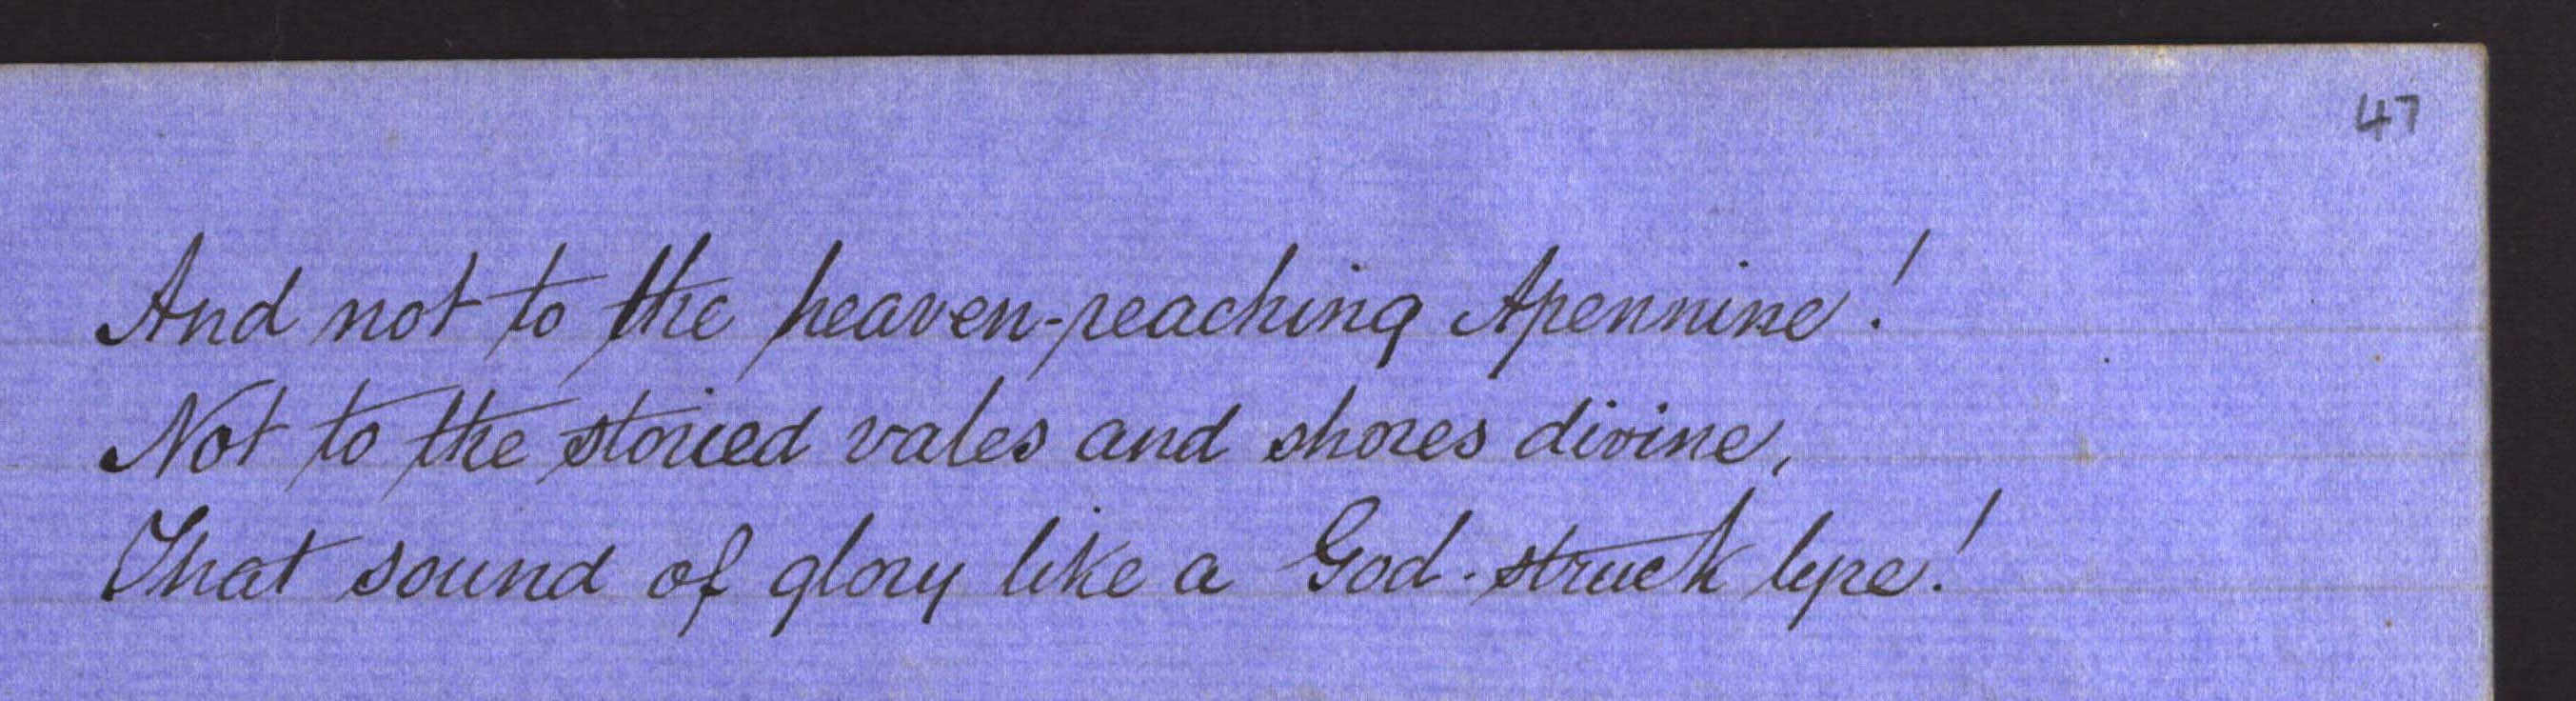 47
And not to the heaven-reaching Apennine!
Not to the storied vales and shores divine,
That sound of glory like a God-struck lyre!